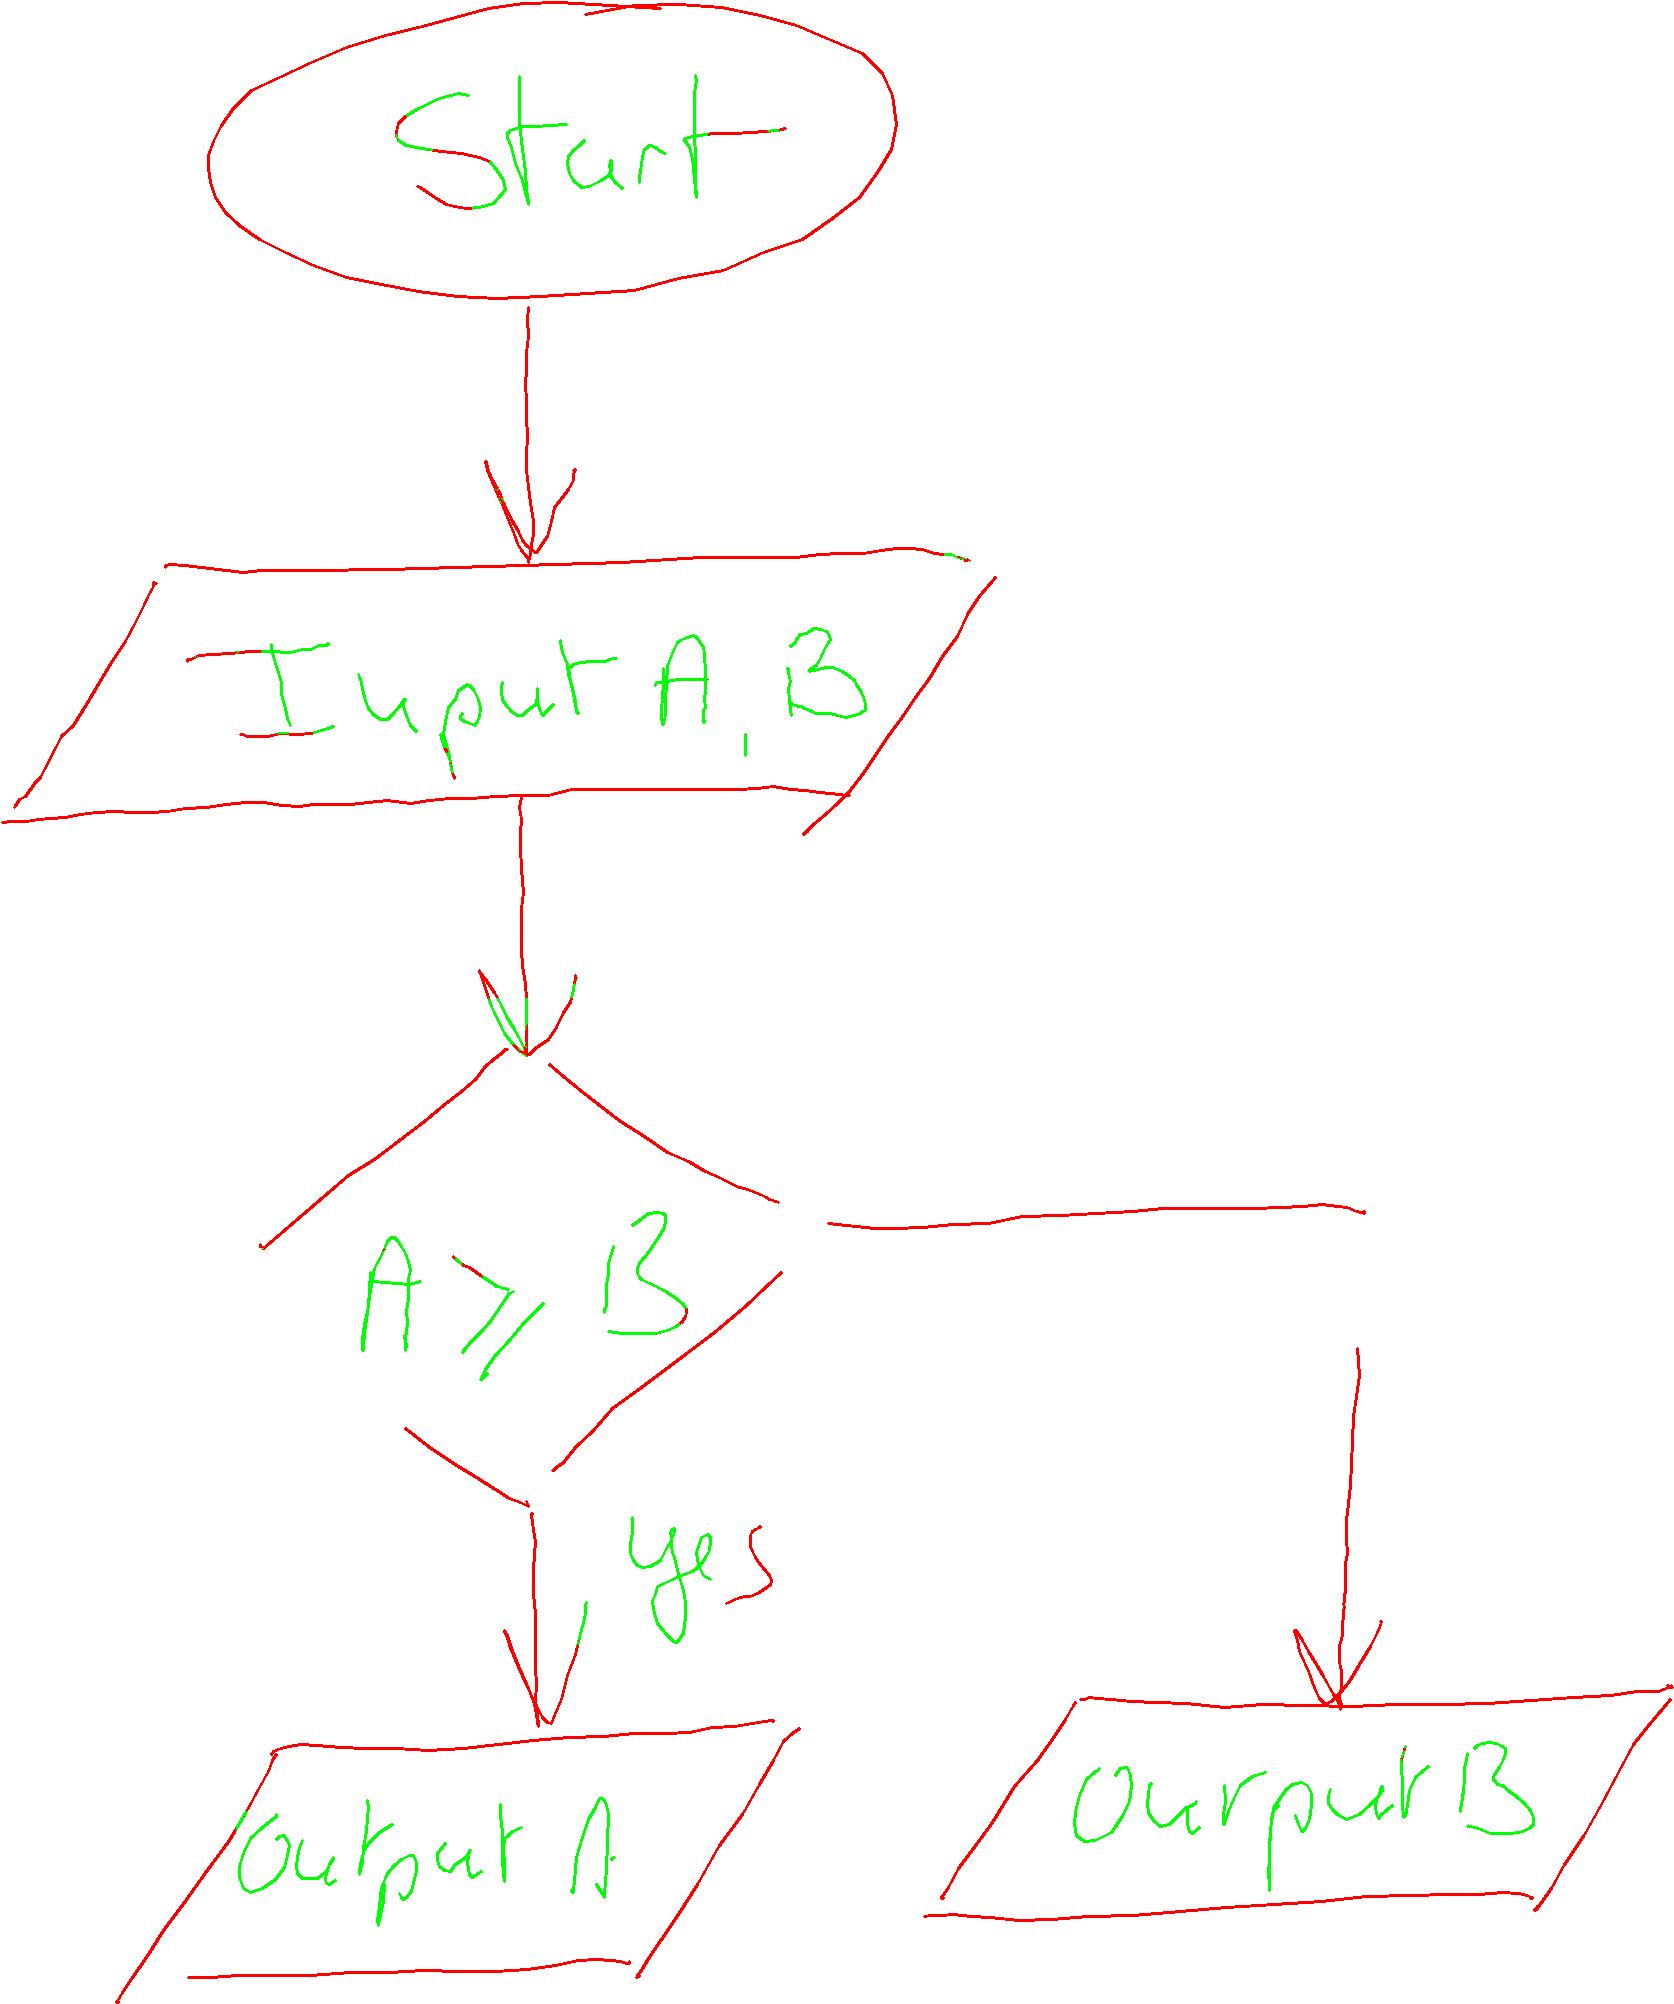 Start
Input A, B
A ≥ B
yes
Output A
Output B